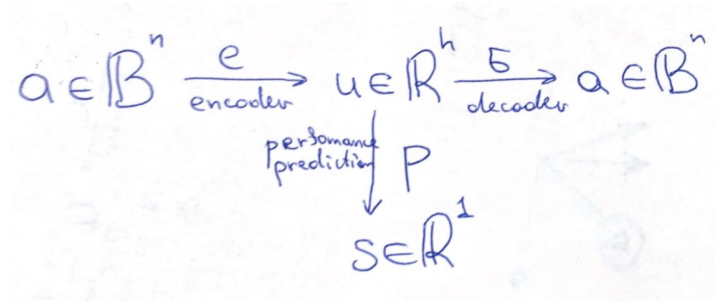 a ∈ 𝔹ⁿ e encoder u ∈ ℝʰ Б decoder a ∈ 𝔹ⁿ
perfomance
prediction P
s ∈ ℝ¹